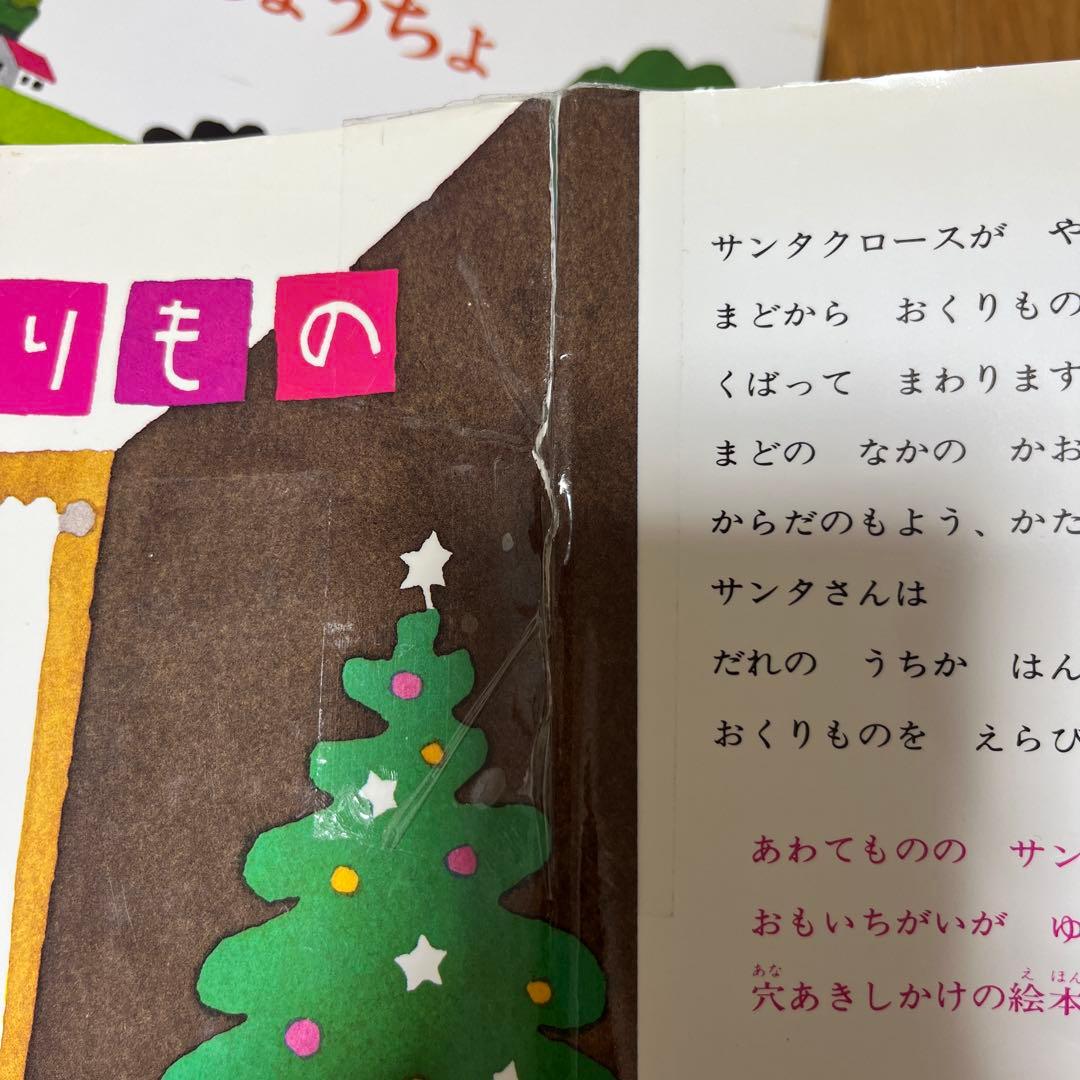 うちょ
りもの
サンタクロースが　や
まどから　おくりもの
くばって　まわります
まどの　なかの　かお
からだのもよう、かた
サンタさんは
だれの　うちか　はん
おくりものを　えらび
あわてものの　サン
おもいちがいが　ゆ
穴あきしかけの絵本